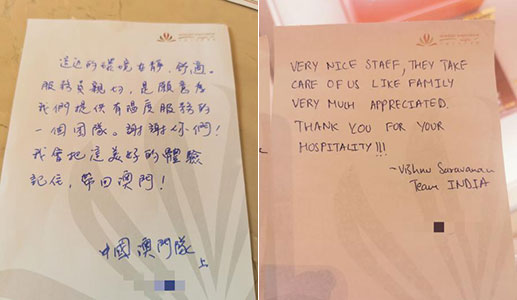 這边的環境安靜, 舒適。
服務員親切, 是願意為
我們提供有溫度服務的
一個團隊。謝謝你們!
我會把這美好的體驗
記住, 帶回澳門!
中國澳門隊
上
VERY NICE STAFF, THEY TAKE
CARE OF US LIKE FAMILY
VERY MUCH APPRECIATED.
THANK YOU FOR YOUR
HOSPITALITY!!!
~Vishnu Saravanan
Team INDIA